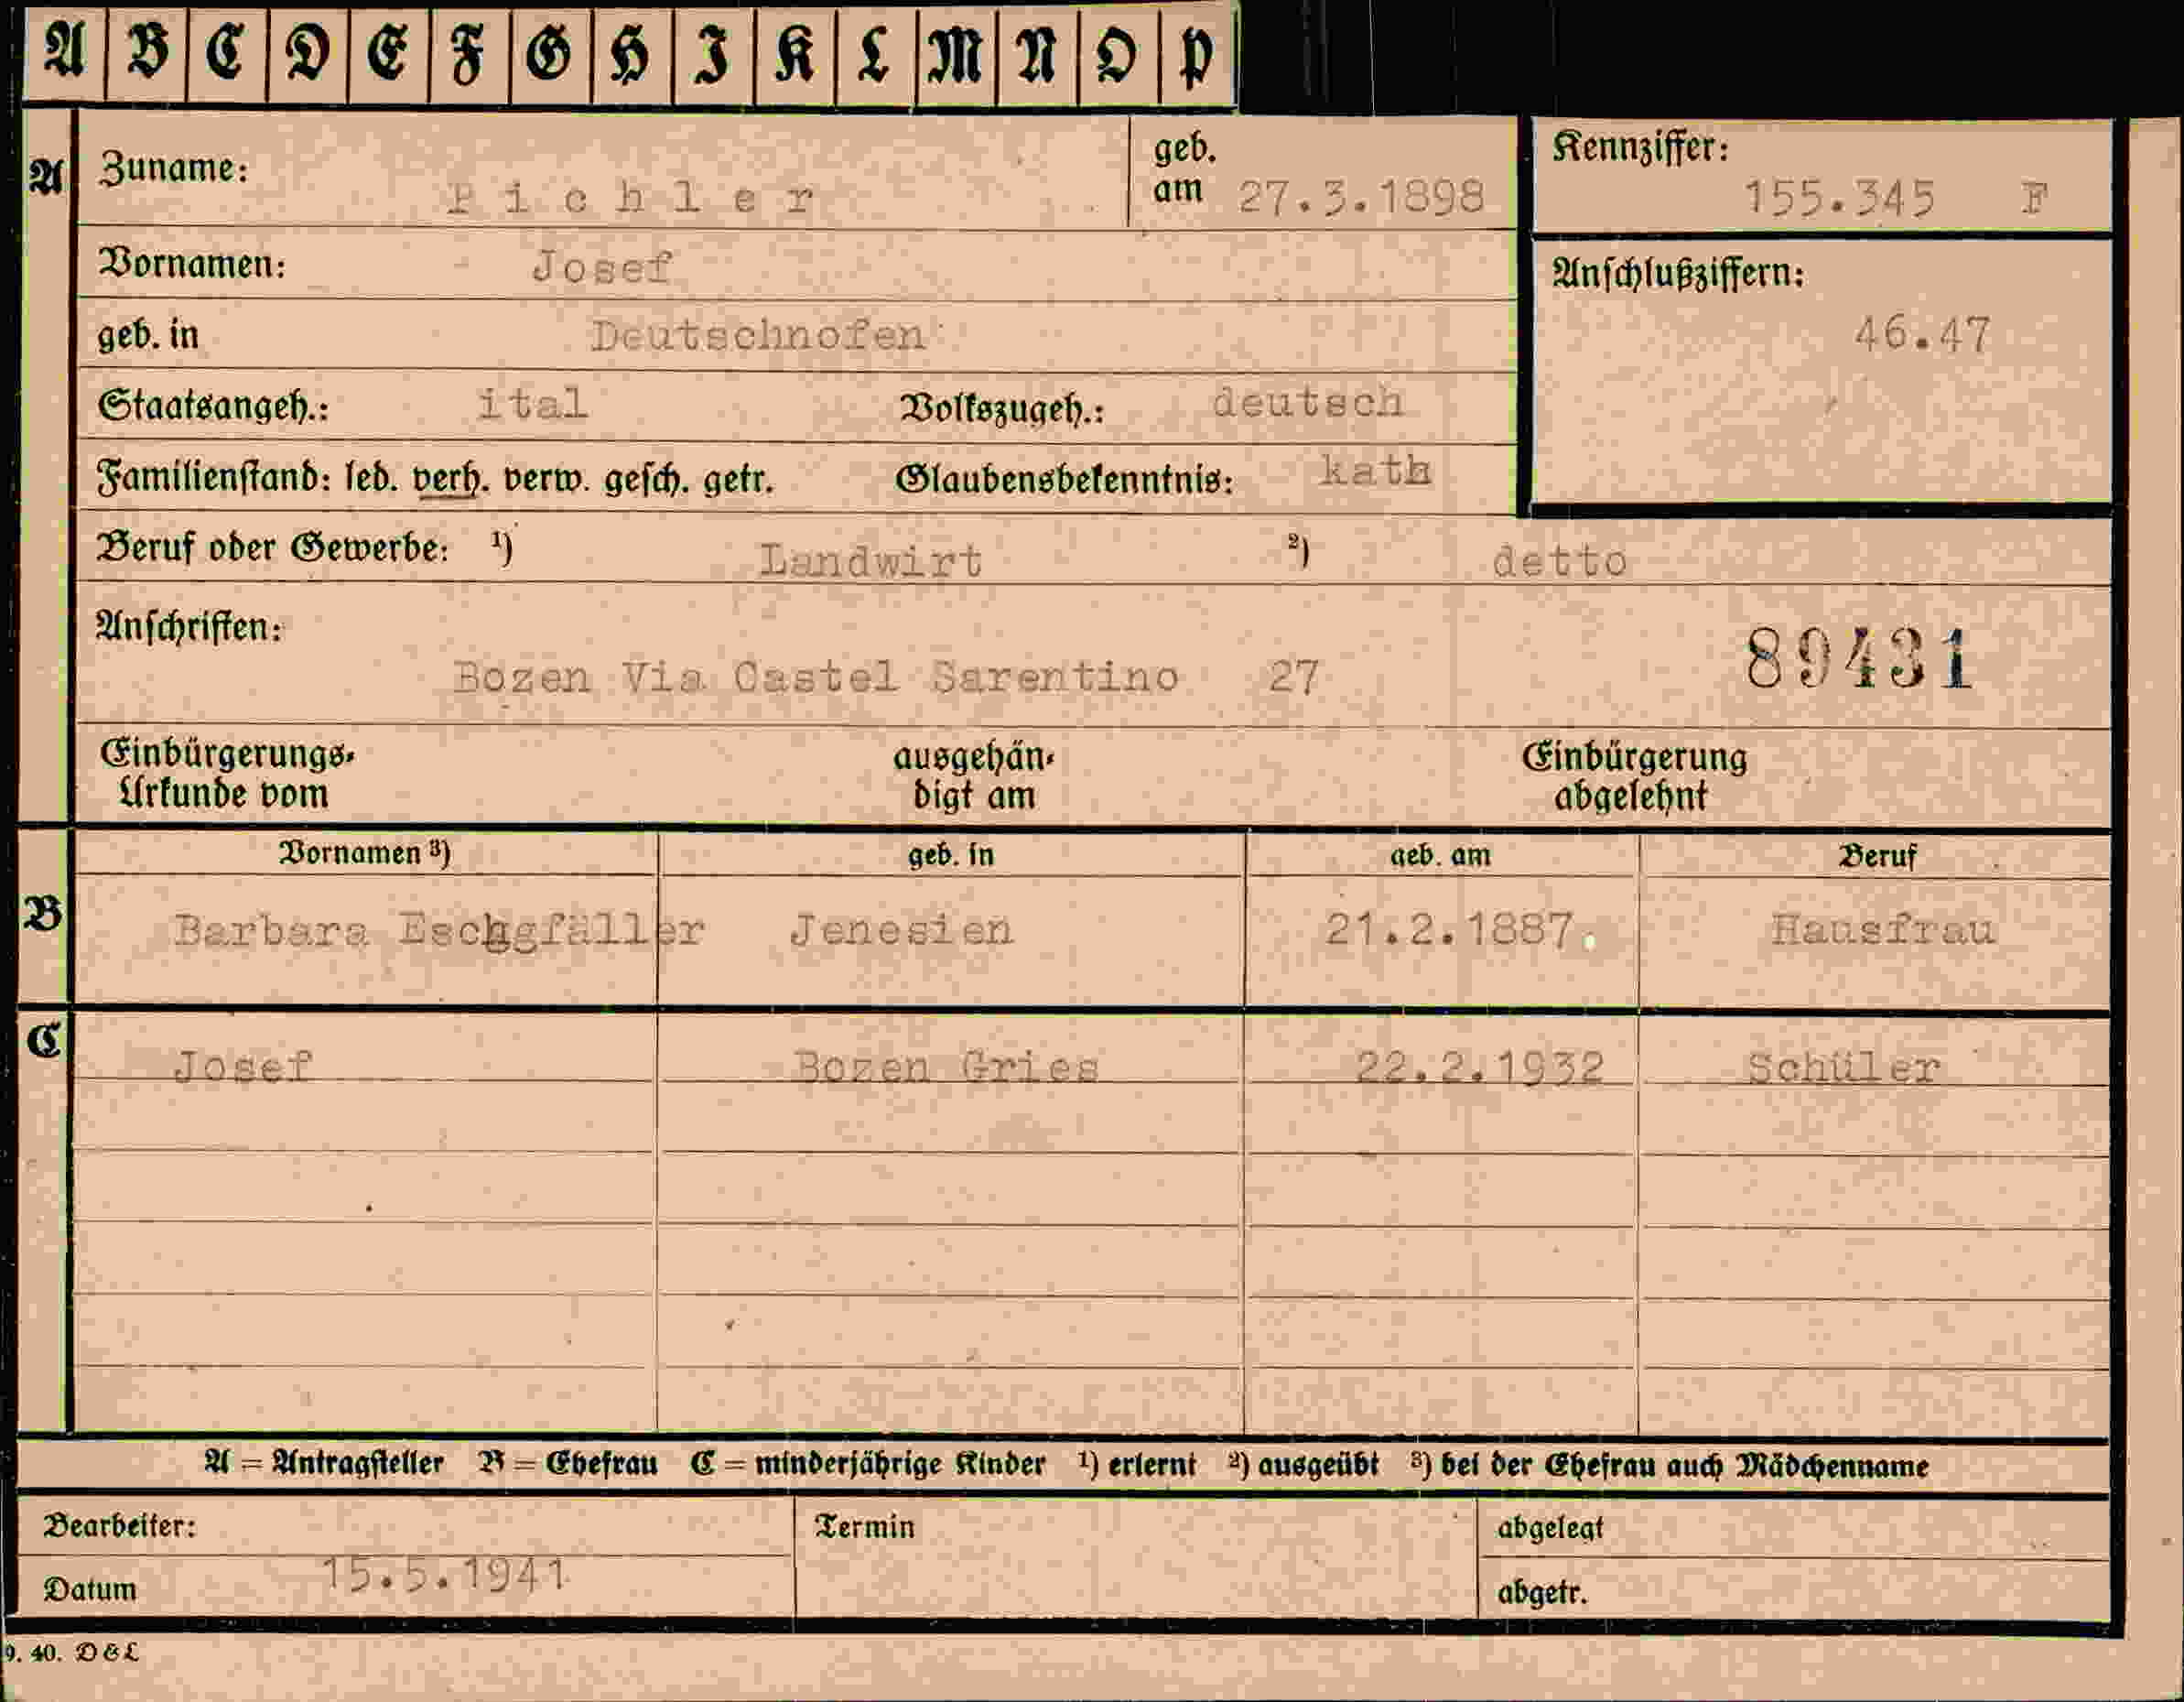 A B C D E F G H I K L M N O P
A Zuname: Pichler geb. am 27.3.1898 Kennziffer: 155.345 F
Vornamen: Josef Anschlußziffern:
geb. in Deutschnofen 46.47
Staatsangeh.: ital Volkszugeh.: deutsch
Familienstand: led. verh. verw. gesch. getr. Glaubensbekenntnis: kath
Beruf oder Gewerbe: 1) Landwirt 2) detto
Anschriften: 89431
Bozen Via Castel Sarentino 27
Einbürgerungs- ausgehän- Einbürgerung
Urkunde vom digt am abgelehnt
Vornamen 3) geb. in geb. am Beruf
B Barbara Eschgfäller Jenesien 21.2.1887. Hausfrau
C Josef Bozen Gries 22.2.1932 Schüler
A = Antragsteller B = Ehefrau C = minderjährige Kinder 1) erlernt 2) ausgeübt 3) bei der Ehefrau auch Mädchenname
Bearbeiter: Termin abgelegt
Datum 15.5.1941 abgetr.
9. 40. D & L